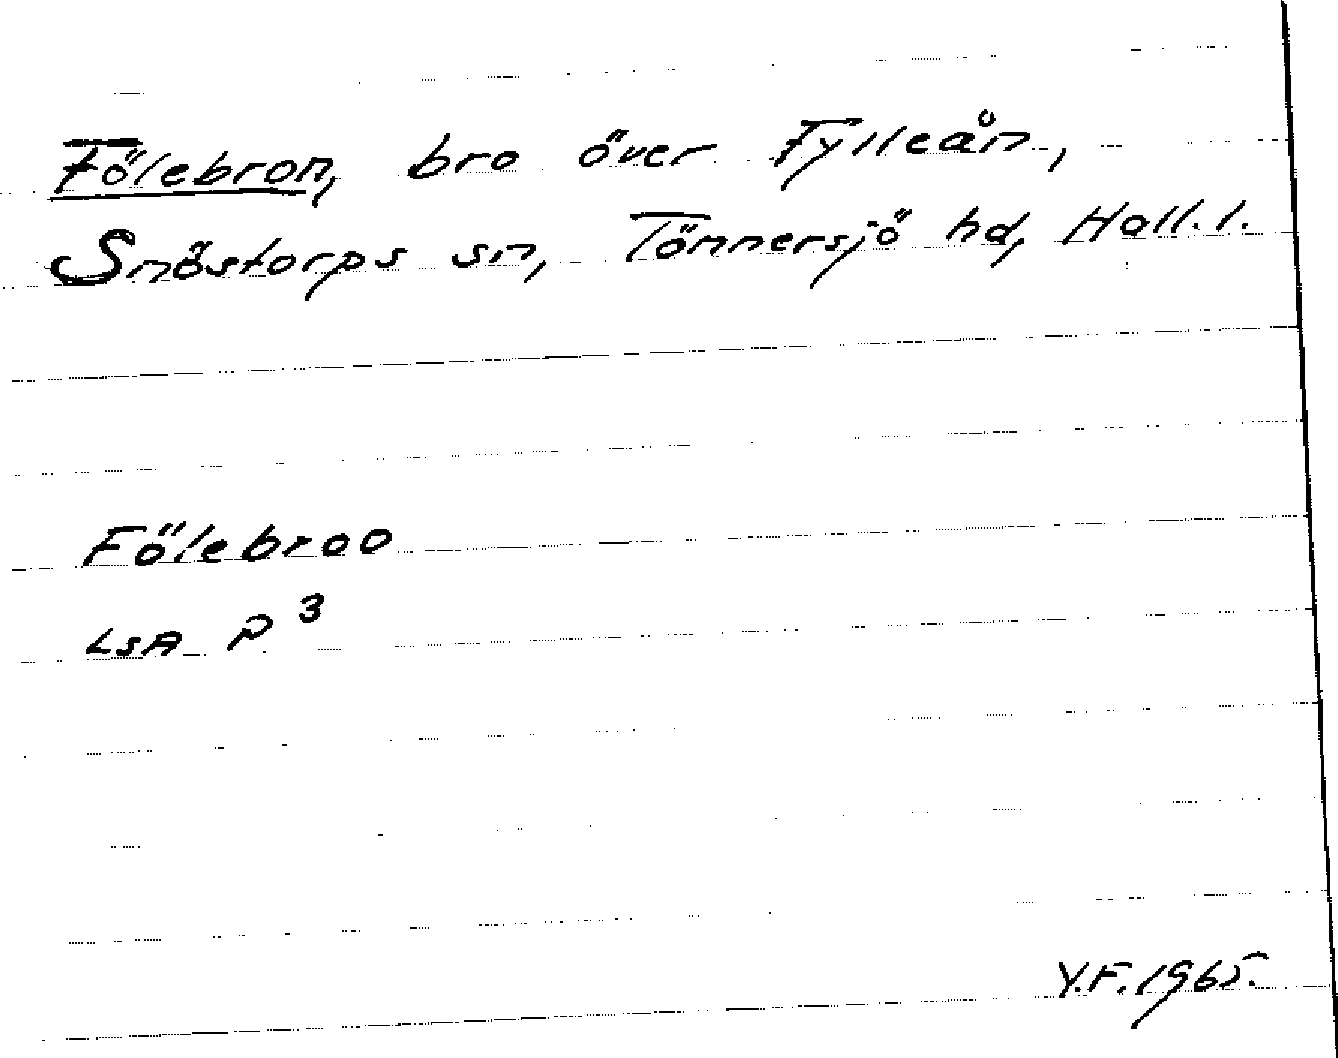 Fölebron, bro över Fylleån,
Snöstorps sn, Tönnersjö hd, Hall. l.
Fölebroo
LSA P 3
Y.F. 1965.